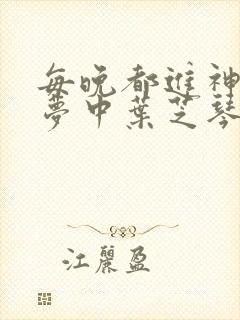 每晚都進神
夢中葉芝琴
江麗盈